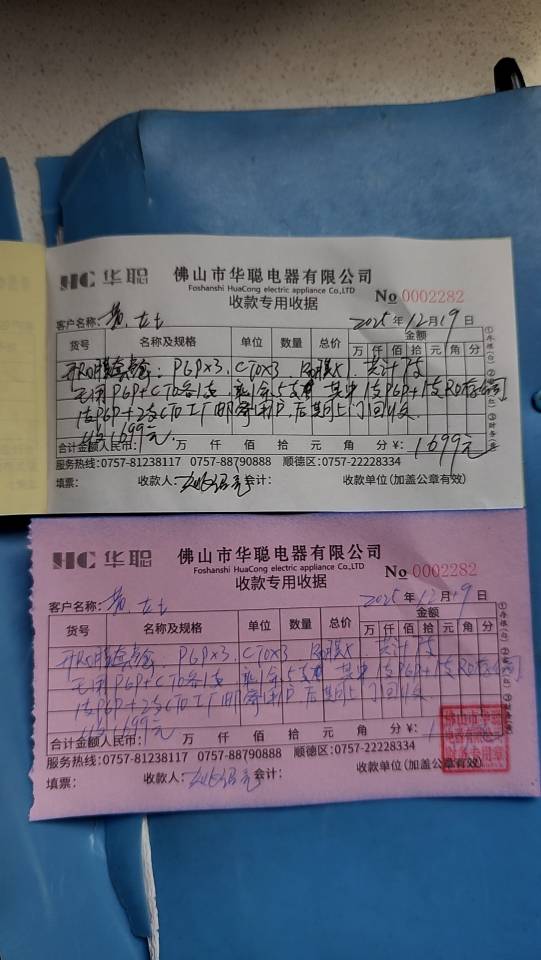 HC 华聪
佛山市华聪电器有限公司
Foshanshi HuaCong electric appliance Co.,LTD
收款专用收据
No 0002282
客户名称: 黄女士
2025年12月19日
货号 名称及规格 单位 数量 总价 金额
万 仟 佰 拾 元 角 分
开RO膜套餐: PGP×3. CTO×3 RO膜×1. 共计7支
已用PGP+CTO各1支 剩余5支 其中1支PGP+1支RO存公司
1支PGP+2支CTO工厂邮寄用户,后期上门回收.
1699元.
合计金额人民币: 万 仟 佰 拾 元 角 分 ¥: 1699元
服务热线:0757-81238117 0757-88790888 顺德区:0757-22228334
填票: 收款人: 会计: 收款单位(加盖公章有效)
HC 华聪
佛山市华聪电器有限公司
Foshanshi HuaCong electric appliance Co.,LTD
收款专用收据
No 0002282
客户名称: 黄女士
2025年12月19日
货号 名称及规格 单位 数量 总价 金额
万 仟 佰 拾 元 角 分
开RO膜套餐: PGP×3. CTO×3 RO膜×1. 共计7支
已用PGP+CTO各1支 剩余5支 其中1支PGP+1支RO存公司
1支PGP+2支CTO工厂邮寄用户,后期上门回收
1699元
合计金额人民币: 万 仟 佰 拾 元 角 分 ¥: 1
佛山市华聪
电器有限公司
财务专用章
服务热线:0757-81238117 0757-88790888 顺德区:0757-22228334
填票: 收款人: 会计: 收款单位(加盖公章有效)